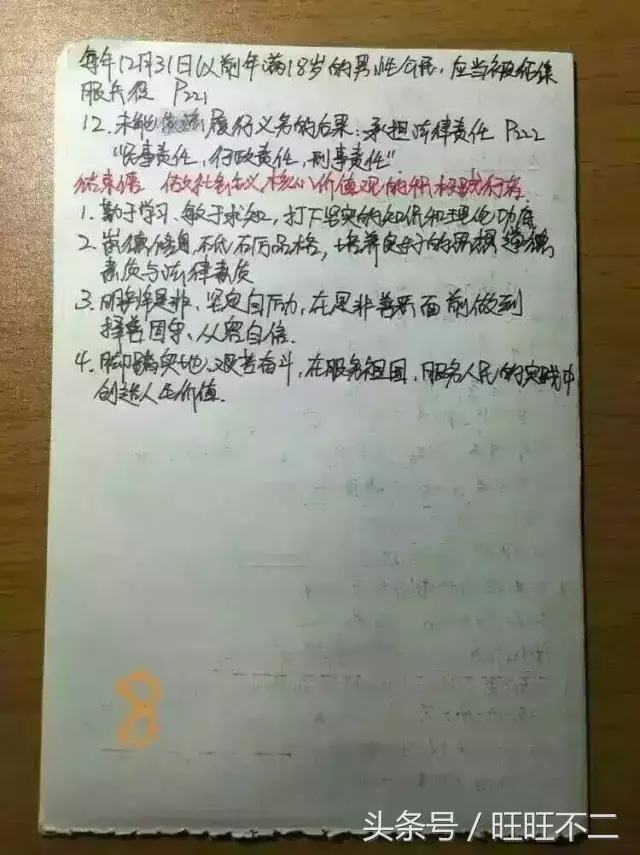 每年12月31日以前年满18岁的男性公民，应当被征集
服兵役 P221
12. 未能依法履行义务的后果：承担法律责任 P222
“民事责任，行政责任，刑事责任”
结束语 做社会主义核心价值观的积极践行者
1. 勤于学习、敏于求知，打下坚实的知识和理论功底
2. 崇德修身，不低石厉品格，培养良好的思想道德
素质与法律素质
3. 明辨是非、坚定自励，在是非善恶面前做到
择善固守、从容自信.
4. 脚踏实地、艰苦奋斗，在服务祖国，服务人民的实践中
创造人生价值.
8
头条号 / 旺旺不二